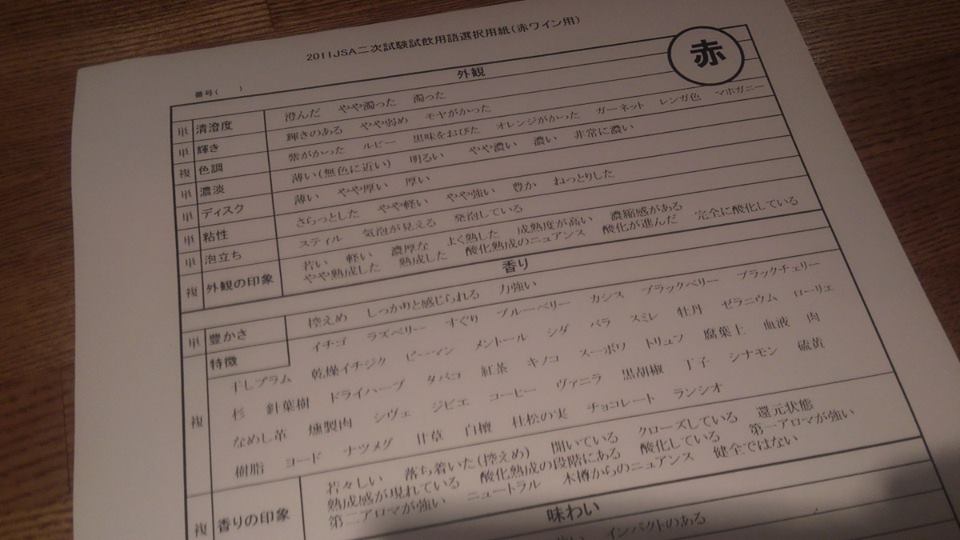 2011JSA二次試験試飲用語選択用紙(赤ワイン用)
赤
番号( )
外観
単 清澄度 澄んだ やや濁った 濁った
単 輝き 輝きのある やや弱め モヤがかった
複 色調 紫がかった ルビー 黒味をおびた オレンジがかった ガーネット レンガ色 マホガニー
単 濃淡 薄い(無色に近い) 明るい やや濃い 濃い 非常に濃い
単 ディスク 薄い やや厚い 厚い
単 粘性 さらっとした やや軽い やや強い 豊か ねっとりした
単 泡立ち スティル 気泡が見える 発泡している
複 外観の印象 若い 軽い 濃厚な よく熟した 成熟度が高い 濃縮感がある
やや熟成した 熟成した 酸化熟成のニュアンス 酸化が進んだ 完全に酸化している
香り
単 豊かさ 控えめ しっかりと感じられる 力強い
複 特徴 イチゴ ラズベリー すぐり ブルーベリー カシス ブラックベリー ブラックチェリー
干しプラム 乾燥イチジク ピーマン メントール シダ バラ スミレ 牡丹 ゼラニウム ローリエ
杉 針葉樹 ドライハーブ タバコ 紅茶 キノコ スーボワ トリュフ 腐葉土 血液 肉
なめし革 燻製肉 シヴェ ジビエ コーヒー ヴァニラ 黒胡椒 丁子 シナモン 硫黄
樹脂 ヨード ナツメグ 甘草 白檀 杜松の実 チョコレート ランシオ
複 香りの印象 若々しい 落ち着いた(控えめ) 開いている クローズしている 還元状態
熟成感が現れている 酸化熟成の段階にある 酸化している 第一アロマが強い
第二アロマが強い ニュートラル 木樽からのニュアンス 健全ではない
味わい
インパクトのある